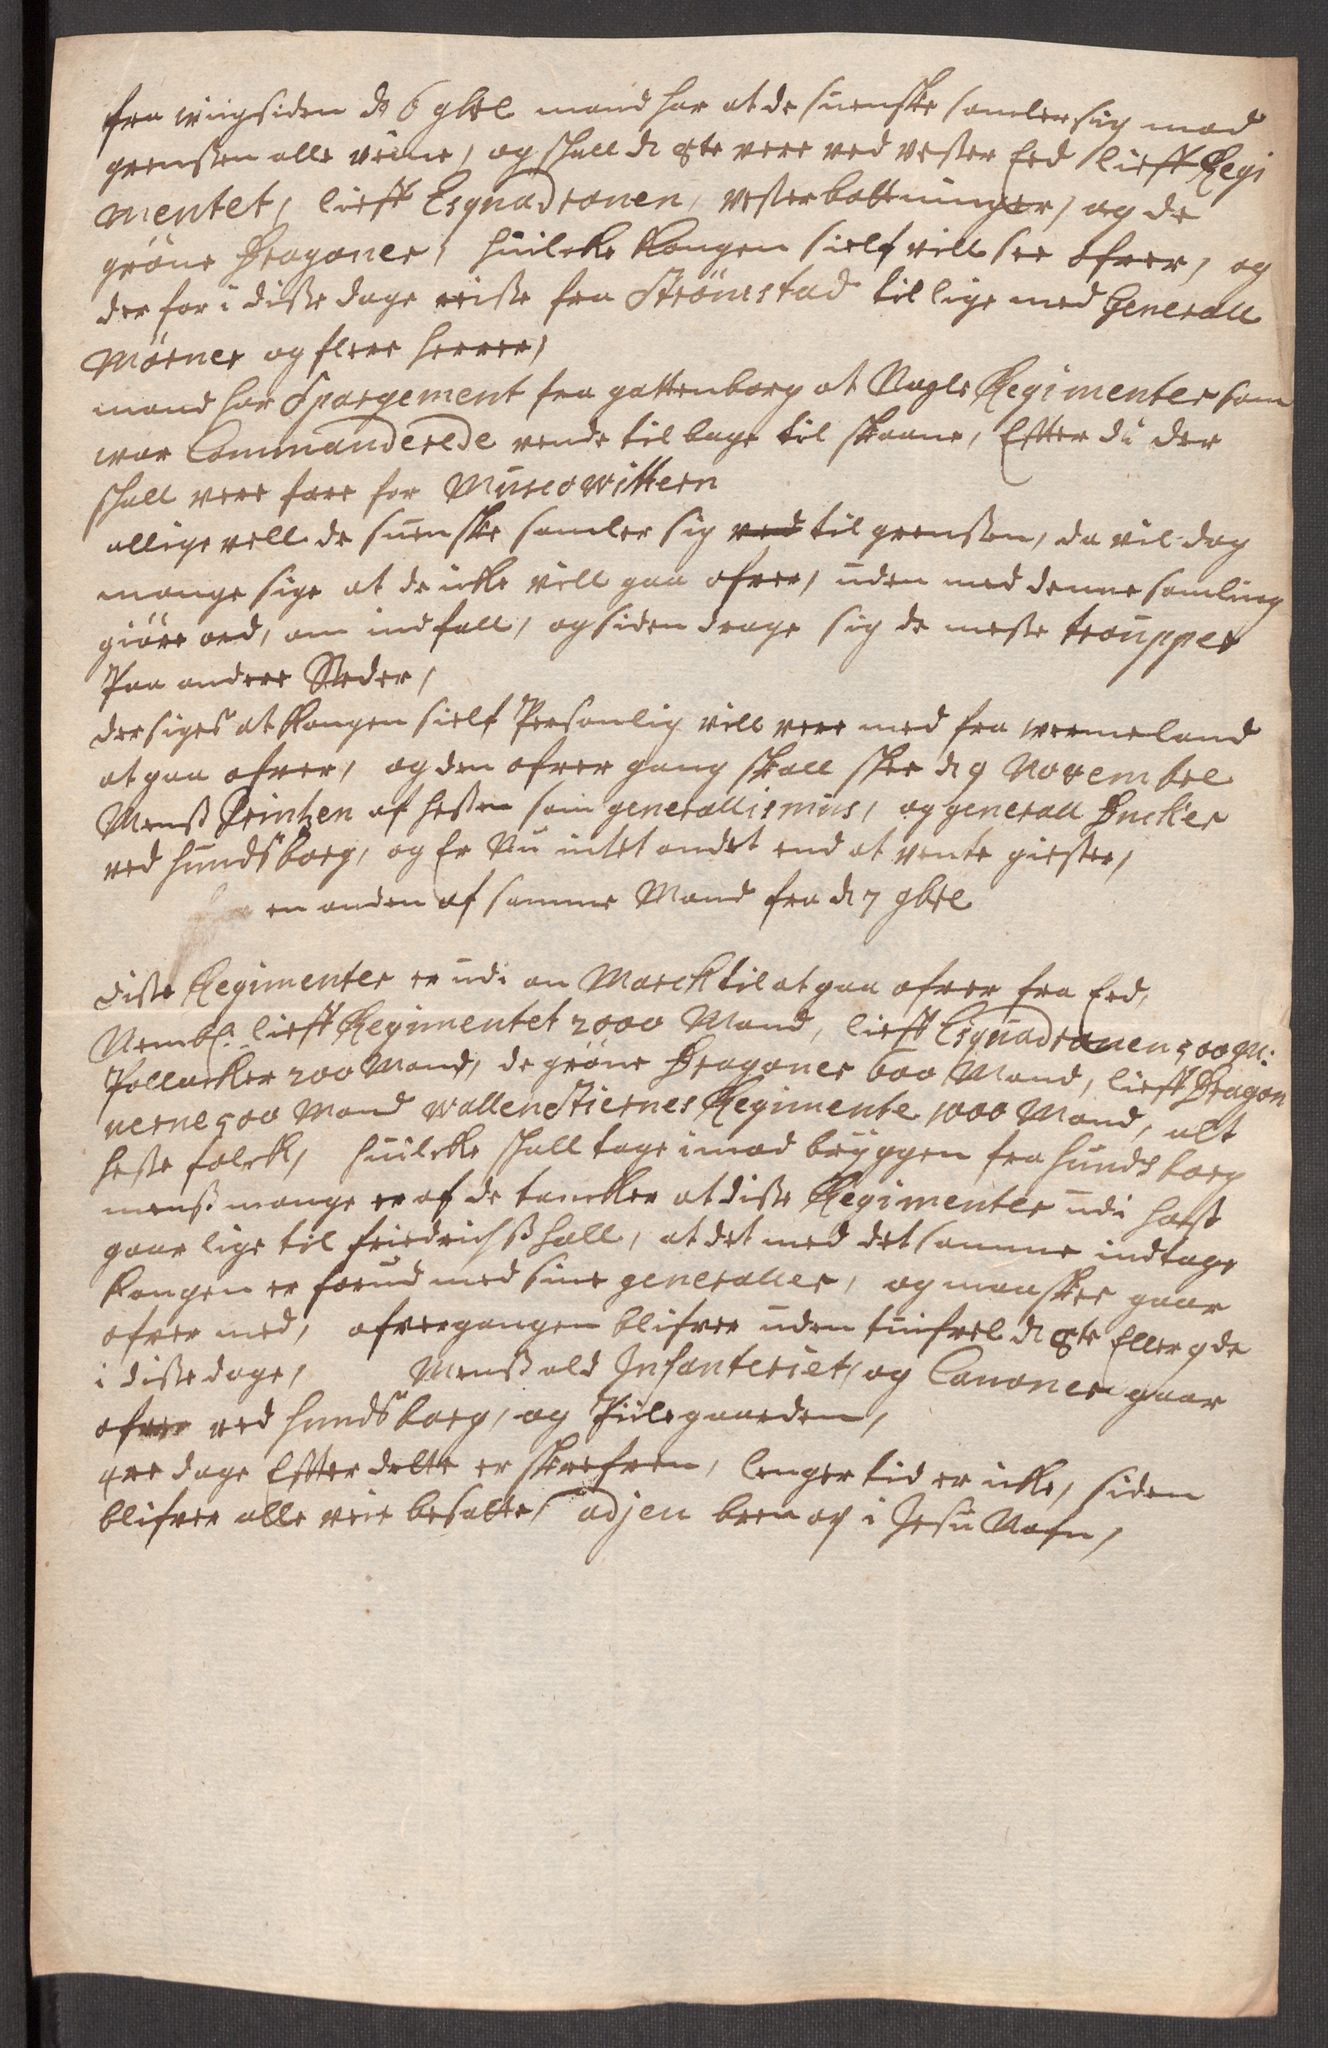 fra wiigsiden d 6 9bel mand har at de suenske samler sig mod
grenssen alle veine, og skall d 8te vere ved vester Eed lieff Regi
mentet, lieff Esquadronen, vesterbottninger, og de
gröne Dragoner, huilcke Kongen sielf vill see ofver, og
der for i disse dage reise fra Strömstad tillige med Generall
Mörner og flere herrer,
mand har Spargement fra gottenborg at Nogle Regimenter som
war Commanderede vende tilbage til skaane, Efter di der
skall vere fare for Muscowittern
allige vell de suenske samler sig ved til grenssen, da vil dog
mange sige at de icke vill gaa ofver, uden med denne samling
giöre ord, om indfall, og siden drage sig de meste troupper
Paa andere Steder,
der siges at Kongen sielf Personlig vill vere med fra wermeland
at gaa ofver, og den ofver gang skall skee d 9 Novembel
Menss Printzen af hessen som generallisimus, og generall Ducker
ved hundsborg, og Er Nu intet andet end at vente giester,
en anden af samme Mand fra d 7 9bel
disse Regimenter er udi an Marck til at gaa ofver fra Eed,
Nembl: lieff Regimentet 2000 Mand, lieff Esquadronen 500 M:
Pollacker 200 Mand, de gröne Dragoner 600 Mand, lieff Dragon
nerne 500 Mand wallenstiernes Regimente 1000 Mand, alt
heste folck, huilcke skall tage imod bryggen fra hundsborg
menss mange er af de tancker at disse Regimenter udi hast
gaar lige til friedrichsshall, at det med det samme indtage
Kongen er forud med sine generaller, og maaskee gaar
ofver med, ofvergangen blifver uden tuifvel d 8te Eller 9de
i disse dage, Menss ald Infanteriet, og Canoner gaar
ofver ved hundsborg, og Piilegaarden,
fire dage Efter dette er skrefven, lenger tid er icke, siden
blifver alle veie besatte, adjeu bren op i Jesu Nafn,